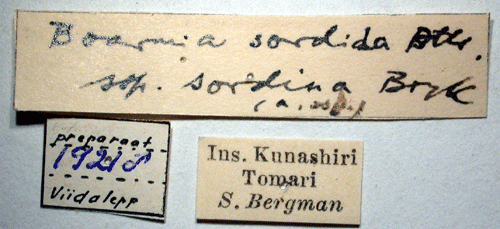 Boarmia sordida Btlr.
ssp. sordina Bryk
preparaat
1921♂
Viidalepp
Ins. Kunashiri
Tomari
S. Bergman